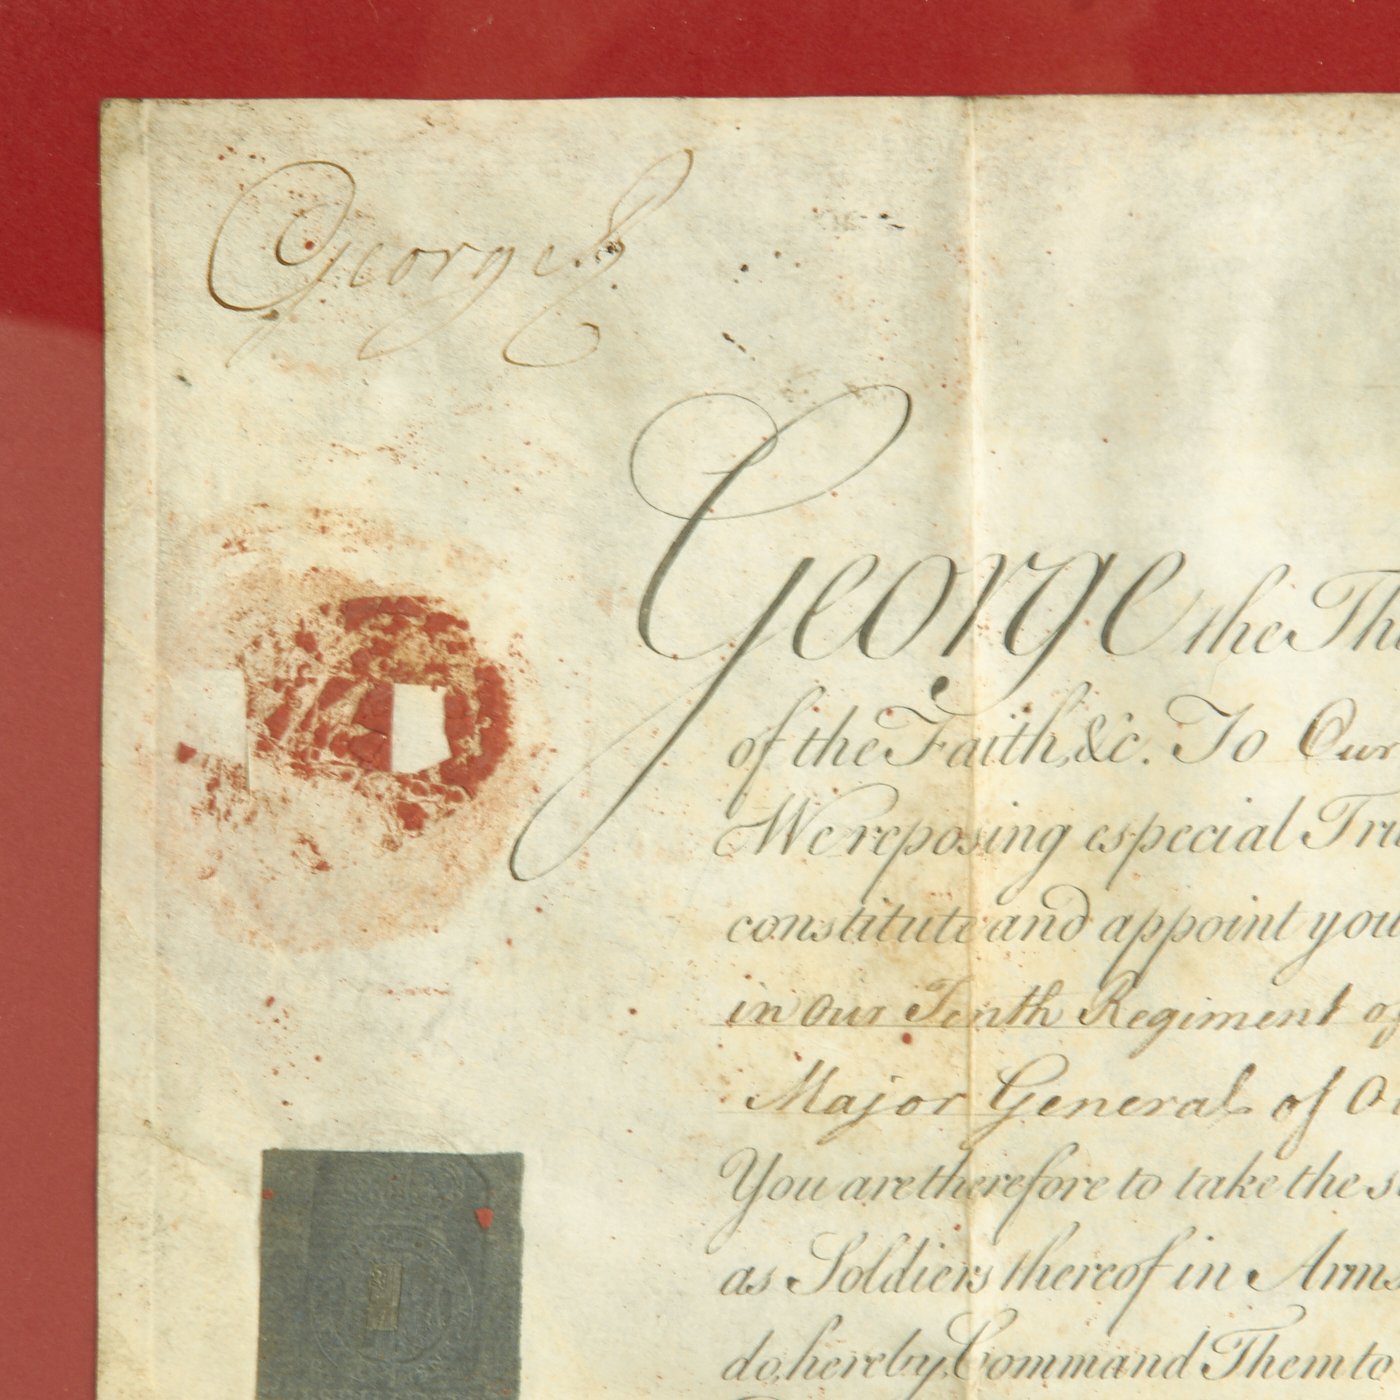 George R
George the Th
of the Faith, &c. To Our
We reposing especial Tru
constitute and appoint you
in Our Tenth Regiment of
Major General of O
You are therefore to take the s
as Soldiers thereof in Arms
do hereby Command Them to